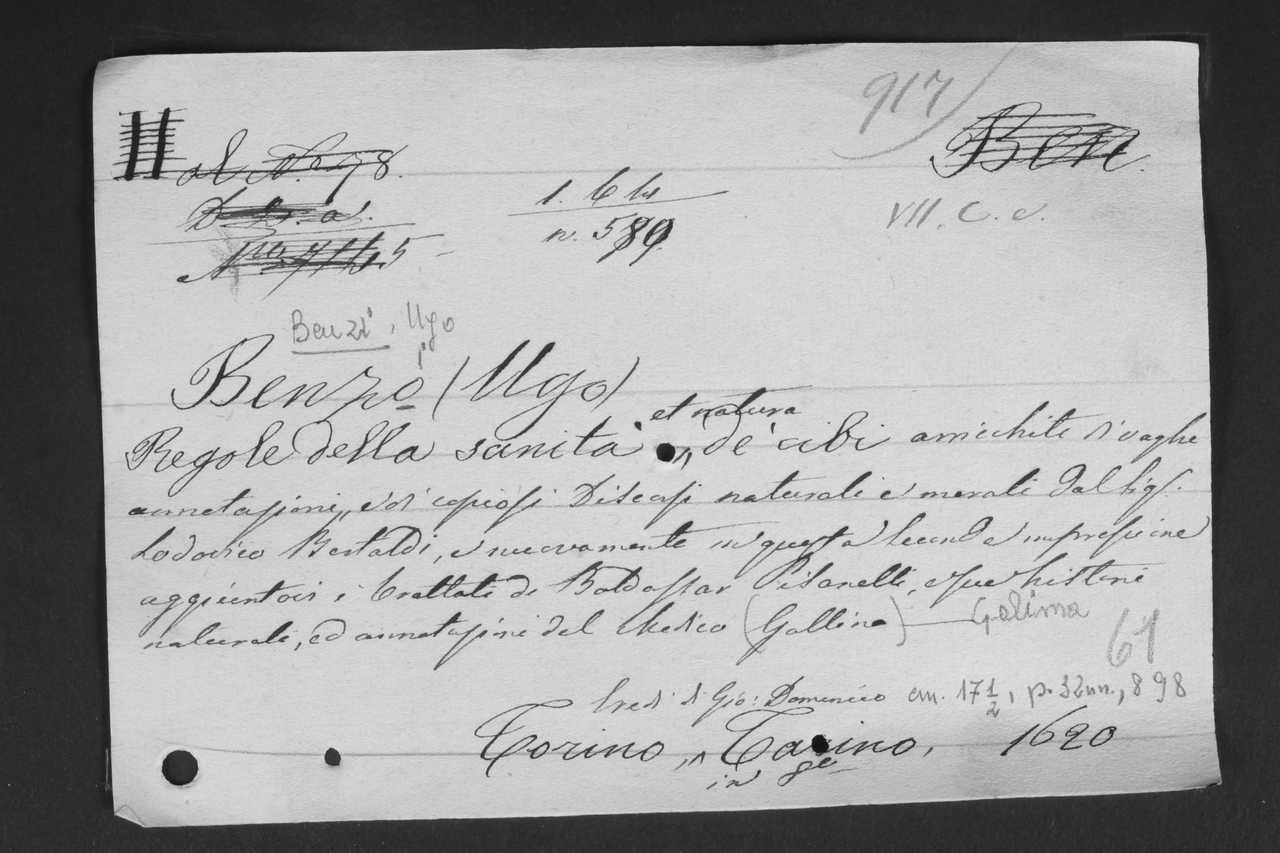 917
Ben
al N.º 98.
D. L. a.
1. b 14
n. 589.
VII. C. c.
Benzi, Ugo
Benzo (Ugo)
et natura
Regole della sanità de' cibi arrichite di vaghe
annotasioni, e di copiosi Discorsi naturali e morali dal Sig.
Lodovico Bertaldi, e nuovamente in questa seconda impressione
aggiuntovi i trattati di Baldassar Pisanelli, e sue historie
naturali, ed annotasioni del Medico (Gallina) Galina
61
Eredi di Gio: Domenico cm. 17 1/2, p. 32 nn., 898
Torino, Tarino, 1620
in 8º